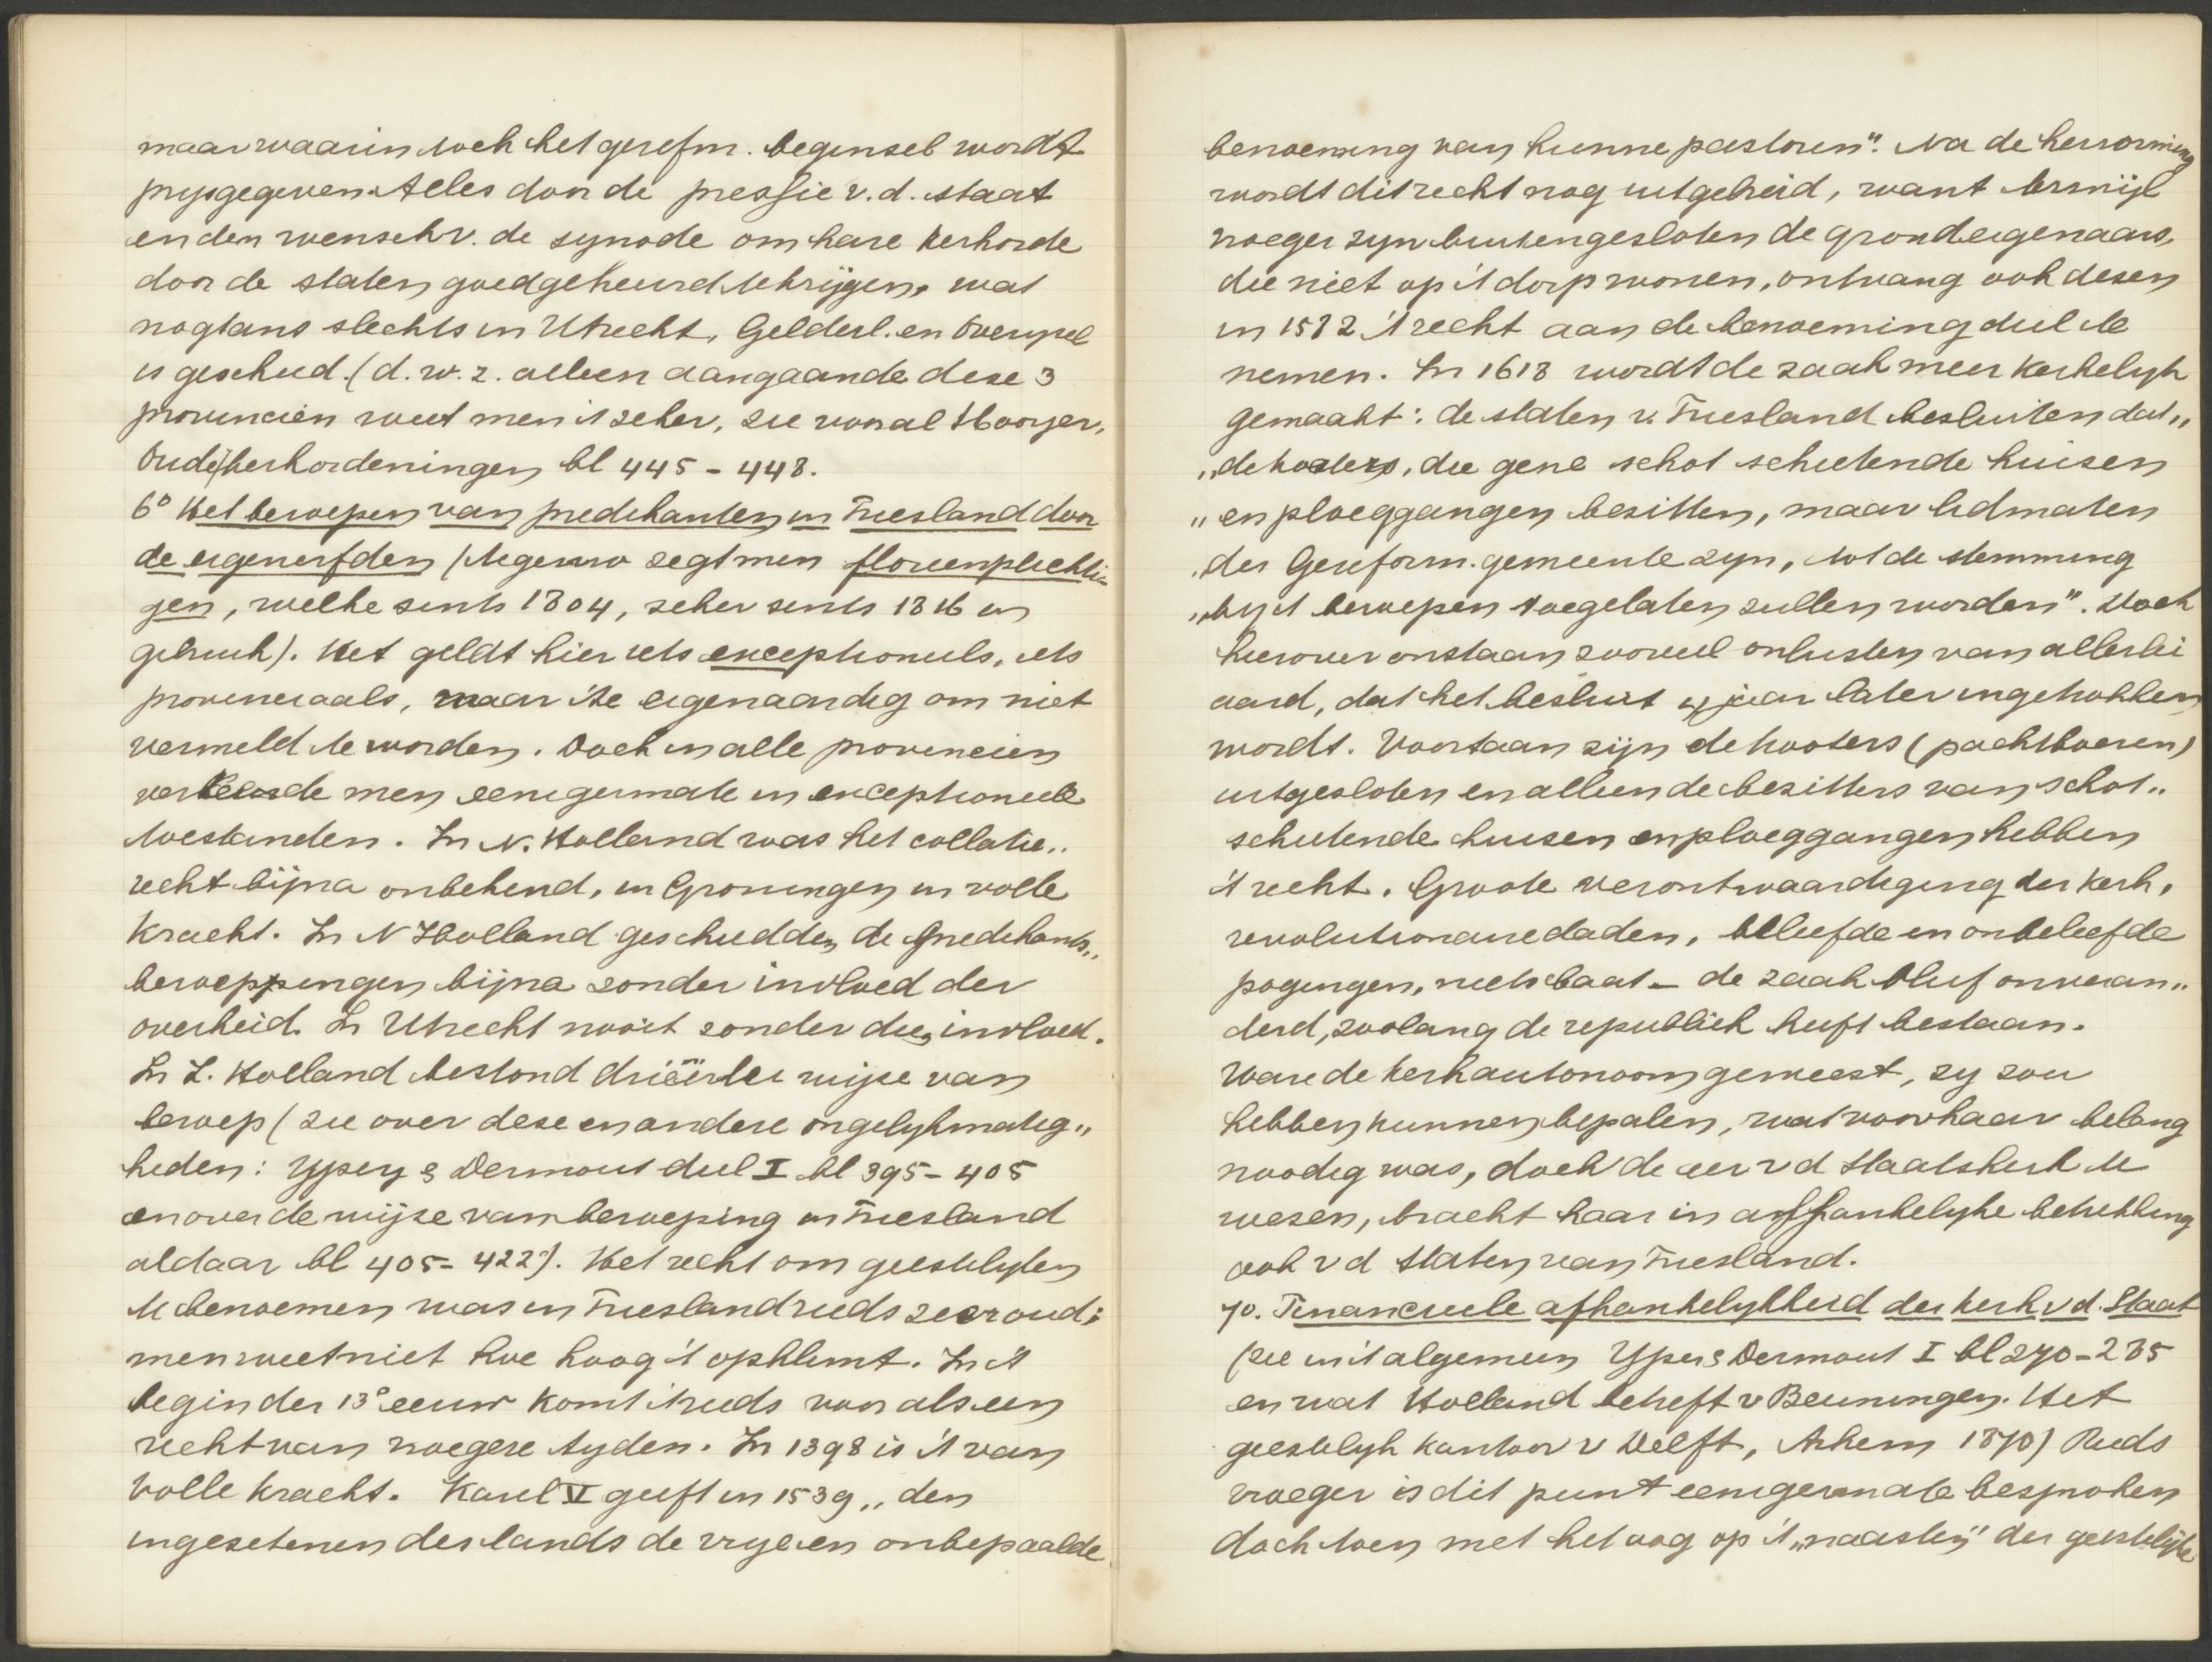 maar waarin toch het gerefm. beginsel wordt
prysgegeven. Alles door de pressie v. d. staat
en den wensch v. de synode om hare kerkorde
door de staten goedgekeurd te krijgen, wat
nogtans slechts in Utrecht, Gelderl. en Overijsel
is geschied. (d. w. z. alleen aangaande deze 3
provincien weet men 't zeker, zie vooral Hooyer,
Oude kerkordeningen bl 445 - 448.
6° Het beroepen van predikanten in Friesland door
de eigenerfden (tegenw zegt men floreenplichti-
gen, welke sints 1804, zeker sints 1816 in
gebruik). Het geldt hier iets exceptioneels, iets
provinciaals, maar 't te eigenaardig om niet
vermeld te worden. Doch in alle provincien
verkeerde men eenigermate in exceptioneele
toestanden. In N. Holland was het collatie„
recht bijna onbekend, in Groningen in volle
kracht. In N Holland geschiedden de predikants„
beroeppingen bijna zonder invloed der
overheid. In Utrecht nooit zonder dien invloed.
In Z. Holland bestond driëerlei wijze van
beroep (zie over deze en andere ongelykmatig„
heden: Ypey & Dermout deel I bl 395 - 405
en over de wijze van beroeping in Friesland
aldaar bl 405 - 422). Het recht om geestelyken
te benoemen was in Friesland reeds zeer oud;
men weet niet hoe hoog 't opklimt. In 't
begin der 13e eeuw komt 't reeds voor als een
recht van vroegere tyden. In 1398 is 't van
volle kracht. Karel V geeft in 1539 „den
ingezetenen des lands de vrye en onbepaalde
benoeming van hunne pastoren". Na de hervorming
wordt dit recht nog uitgebreid, want terwijl
vroeger zyn buitengesloten de grondeigenaars,
die niet op 't dorp wonen, ontvang ook dezen
in 1582 't recht aan de benoeming deel te
nemen. In 1618 wordt de zaak meer kerkelyk
gemaakt: de staten v. Friesland besluiten dat„
„de hooters, die gene schot schietende huizen
„en ploeggangen bezitten, maar lidmaten
„der Gereform. gemeente zyn, tot de stemming
„by 't beroepen toegelaten zullen worden". Doch
hierover onstaan zooveel onlusten van allerlei
aard, dat het besluit 4 jaar later ingetrokken
wordt. Voortaan zijn de hooters (pachtboeren)
uitgesloten en alleen de bezitters van schot„
schietende huizen en ploeggangen hebben
't recht. Groote verontwaardiging der kerk,
revolutionaire daden, beleefde en onbeleefde
pogingen, niets baat - de zaak bleef onveran„
derd, zoolang de republiek heeft bestaan.
Ware de kerk autonoom geweest, zy zou
hebben kunnen bepalen, wat voor haar belang
noodig was, doch de eer v d Staatskerk te
wezen, bracht haar in affhankelyke betrekking
ook v d Staten van Friesland.
7o. Financieele afhankelykheid der kerk v d. Staat
(zie in 't algemeen Ypey & Dermout I bl 270 - 285
en wat Holland betreft v Beuningen. Het
geestelyk kantoor v Delft, Arhem 1870) Reeds
vroeger is dit punt eenigermate besproken
doch toen met het oog op 't „naasten" der geestelijke